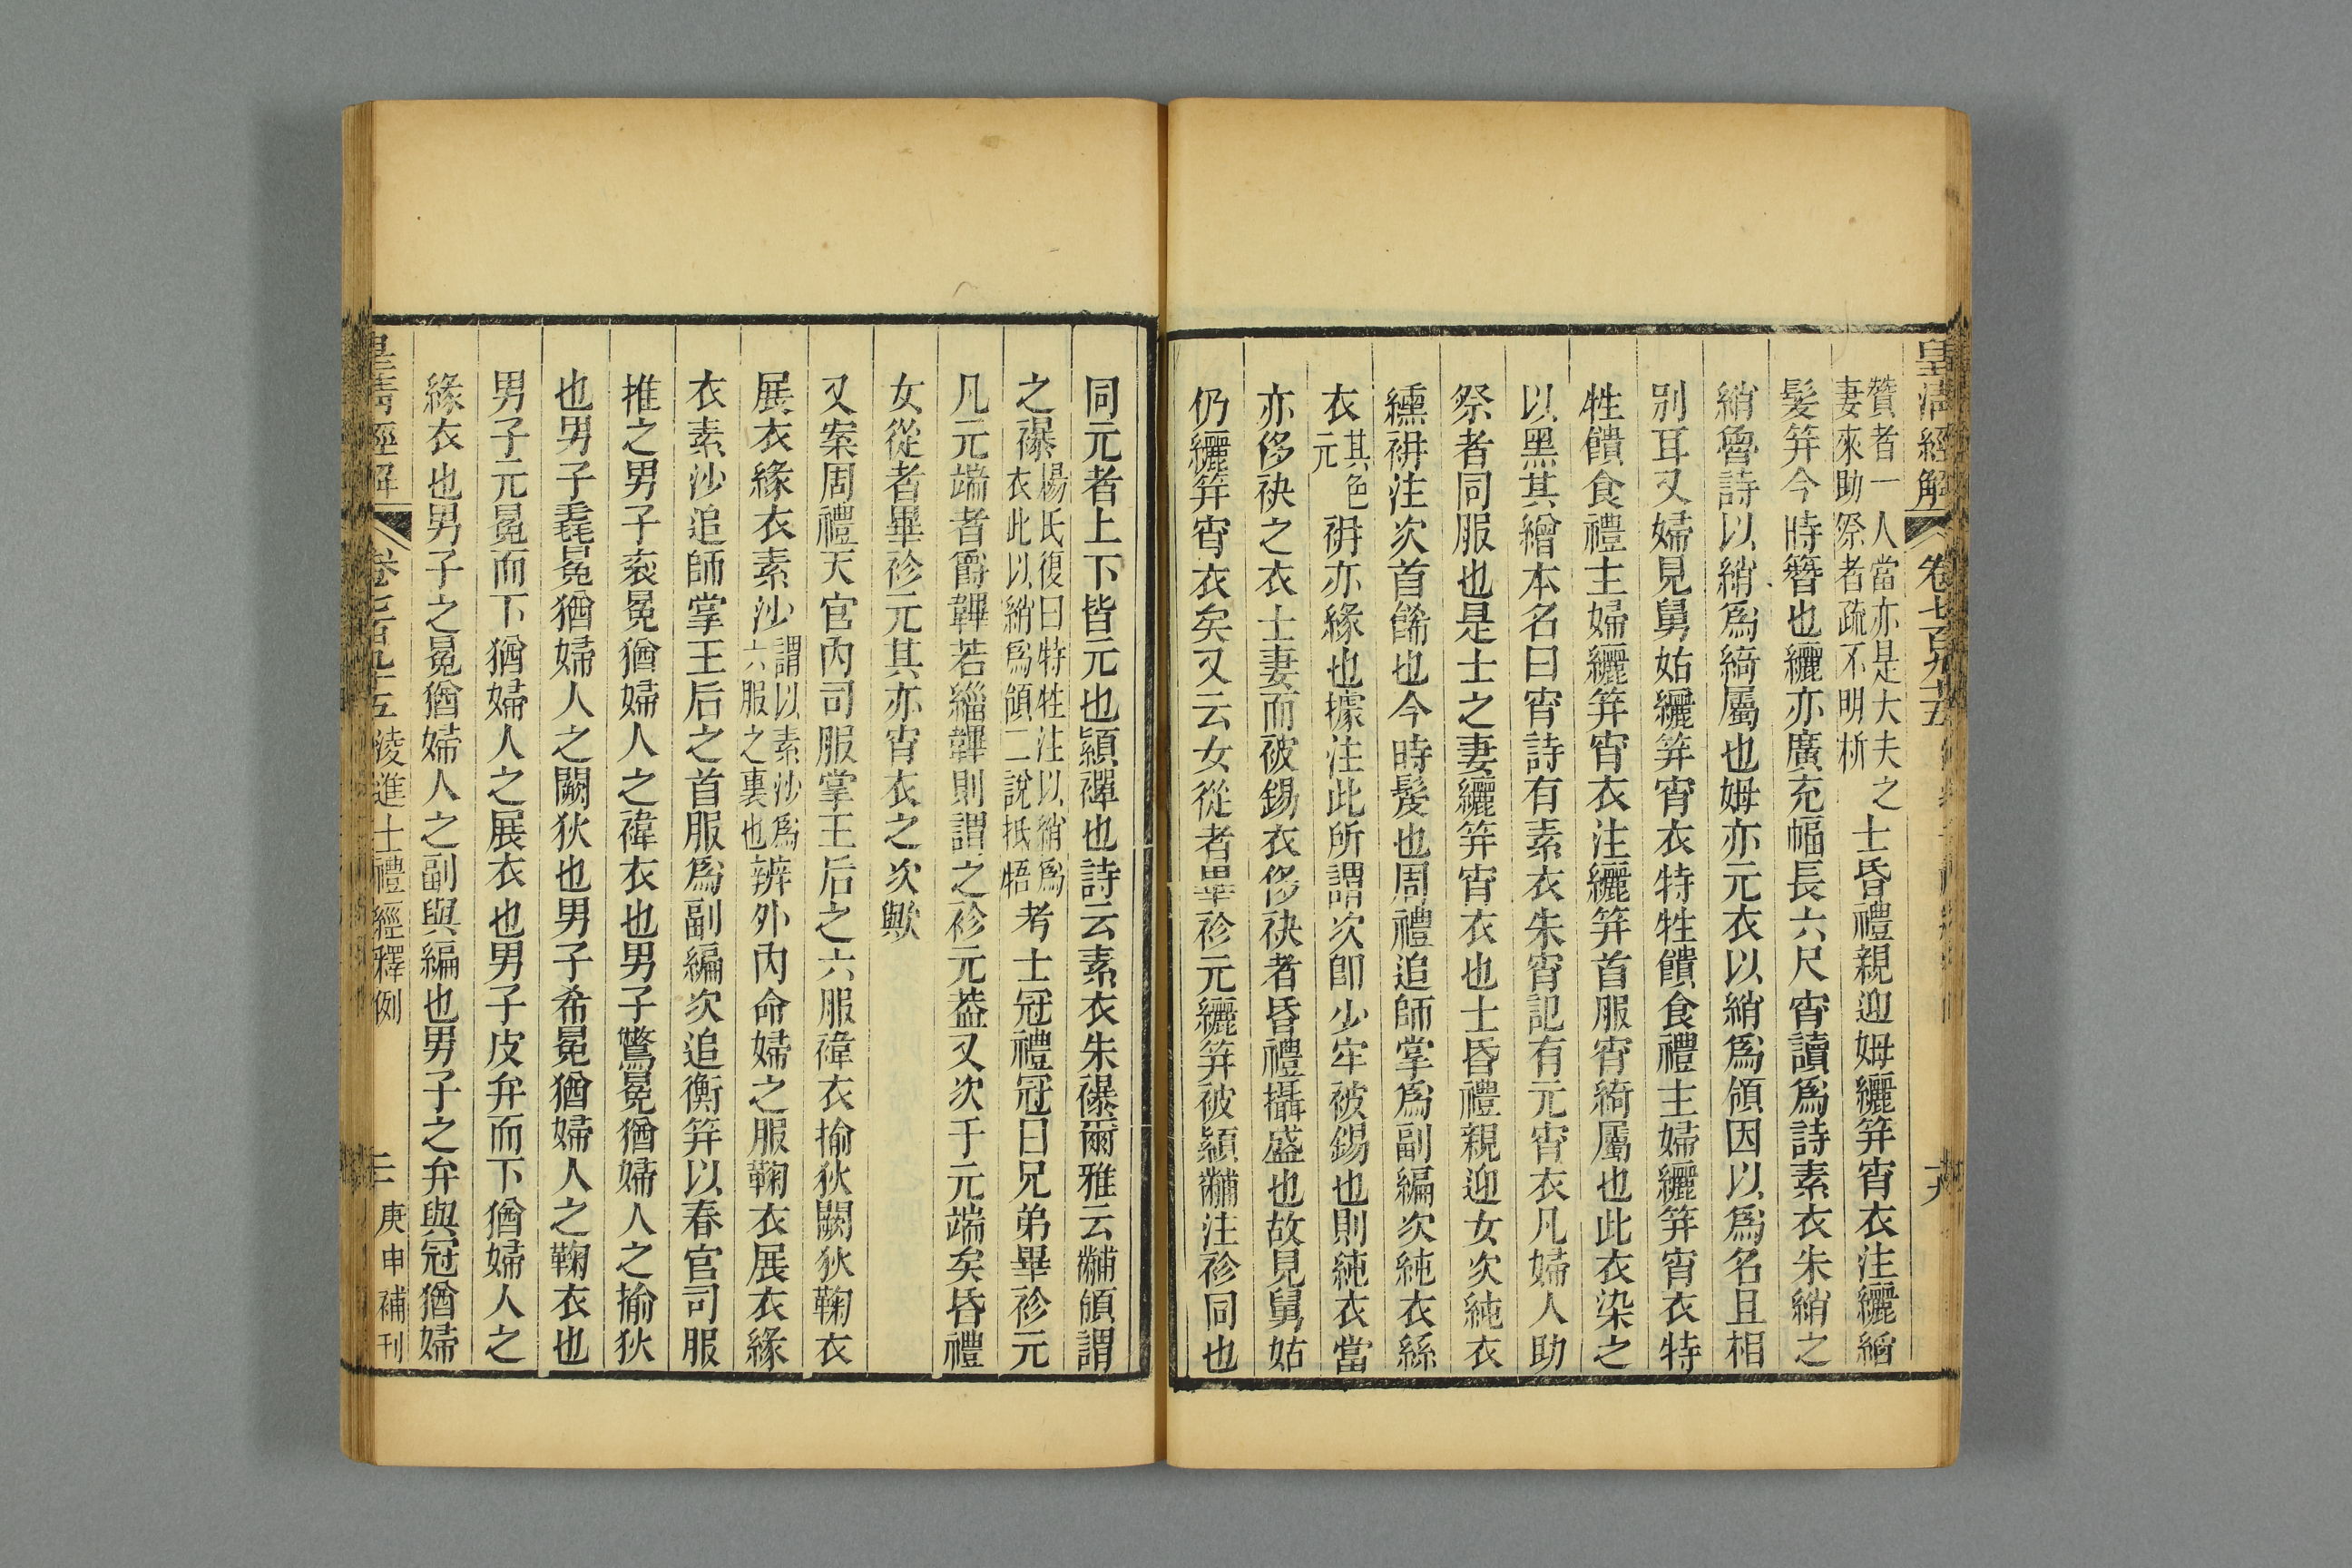 皇清經解 卷七百九十五
贊者一人當亦是大夫之妻來助祭者疏不明析士昏禮親迎姆纚笄宵衣注纚縚
髮笄今時簪也纚亦廣充幅長六尺宵讀爲詩素衣朱綃之
綃魯詩以綃爲綺屬也姆亦元衣以綃爲領因以爲名且相
别耳又婦見舅姑纚笄宵衣特牲饋食禮主婦纚笄宵衣特
牲饋食禮主婦纚笄宵衣注纚笄首服宵綺屬也此衣染之
以黑其繒本名曰宵詩有素衣朱宵記有元宵衣凡婦人助
祭者同服也是士之妻纚笄宵衣也士昏禮親迎女次純衣
纁袡注次首餙也今時髲也周禮追師掌爲副編次純衣絲
衣其色元袡亦緣也據注此所謂次卽少牢被錫也則純衣當
亦侈袂之衣士妻而被錫衣侈袂者昏禮攝盛也故見舅姑
仍纚笄宵衣矣又云女從者畢袗元纚笄被潁黼注袗同也
同元者上下皆元也潁襌也詩云素衣朱襮爾雅云黼領謂
之襮楊氏復曰特牲注以綃爲衣此以綃爲領二說抵牾考士冠禮冠日兄弟畢袗元
凡元端者爵韠若緇韠則謂之袗元葢又次于元端矣昏禮
女從者畢袗元其亦宵衣之次歟
又案周禮天官內司服掌王后之六服褘衣揄狄闕狄鞠衣
展衣緣衣素沙謂以素沙爲六服之裏也辨外內命婦之服鞠衣展衣緣
衣素沙追師掌王后之首服爲副編次追衡笄以春官司服
推之男子衮冕猶婦人之褘衣也男子鷩冕猶婦人之揄狄
也男子毳冕猶婦人之闕狄也男子希冕猶婦人之鞠衣也
男子元冕而下猶婦人之展衣也男子皮弁而下猶婦人之
緣衣也男子之冕猶婦人之副與編也男子之弁與冠猶婦
皇清經解 卷七百九十五 淩進士禮經釋例 庚申補刊